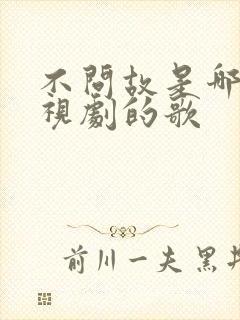 不問故是哪
視劇的歌
前川一夫 黑